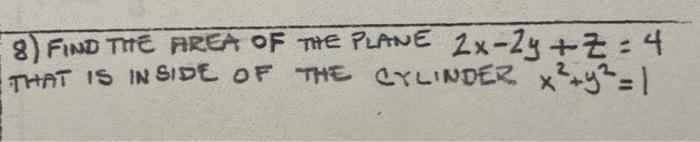 8) FIND THE AREA OF THE PLANE 2x-2y+z=4
THAT IS INSIDE OF THE CYLINDER x²+y²=1